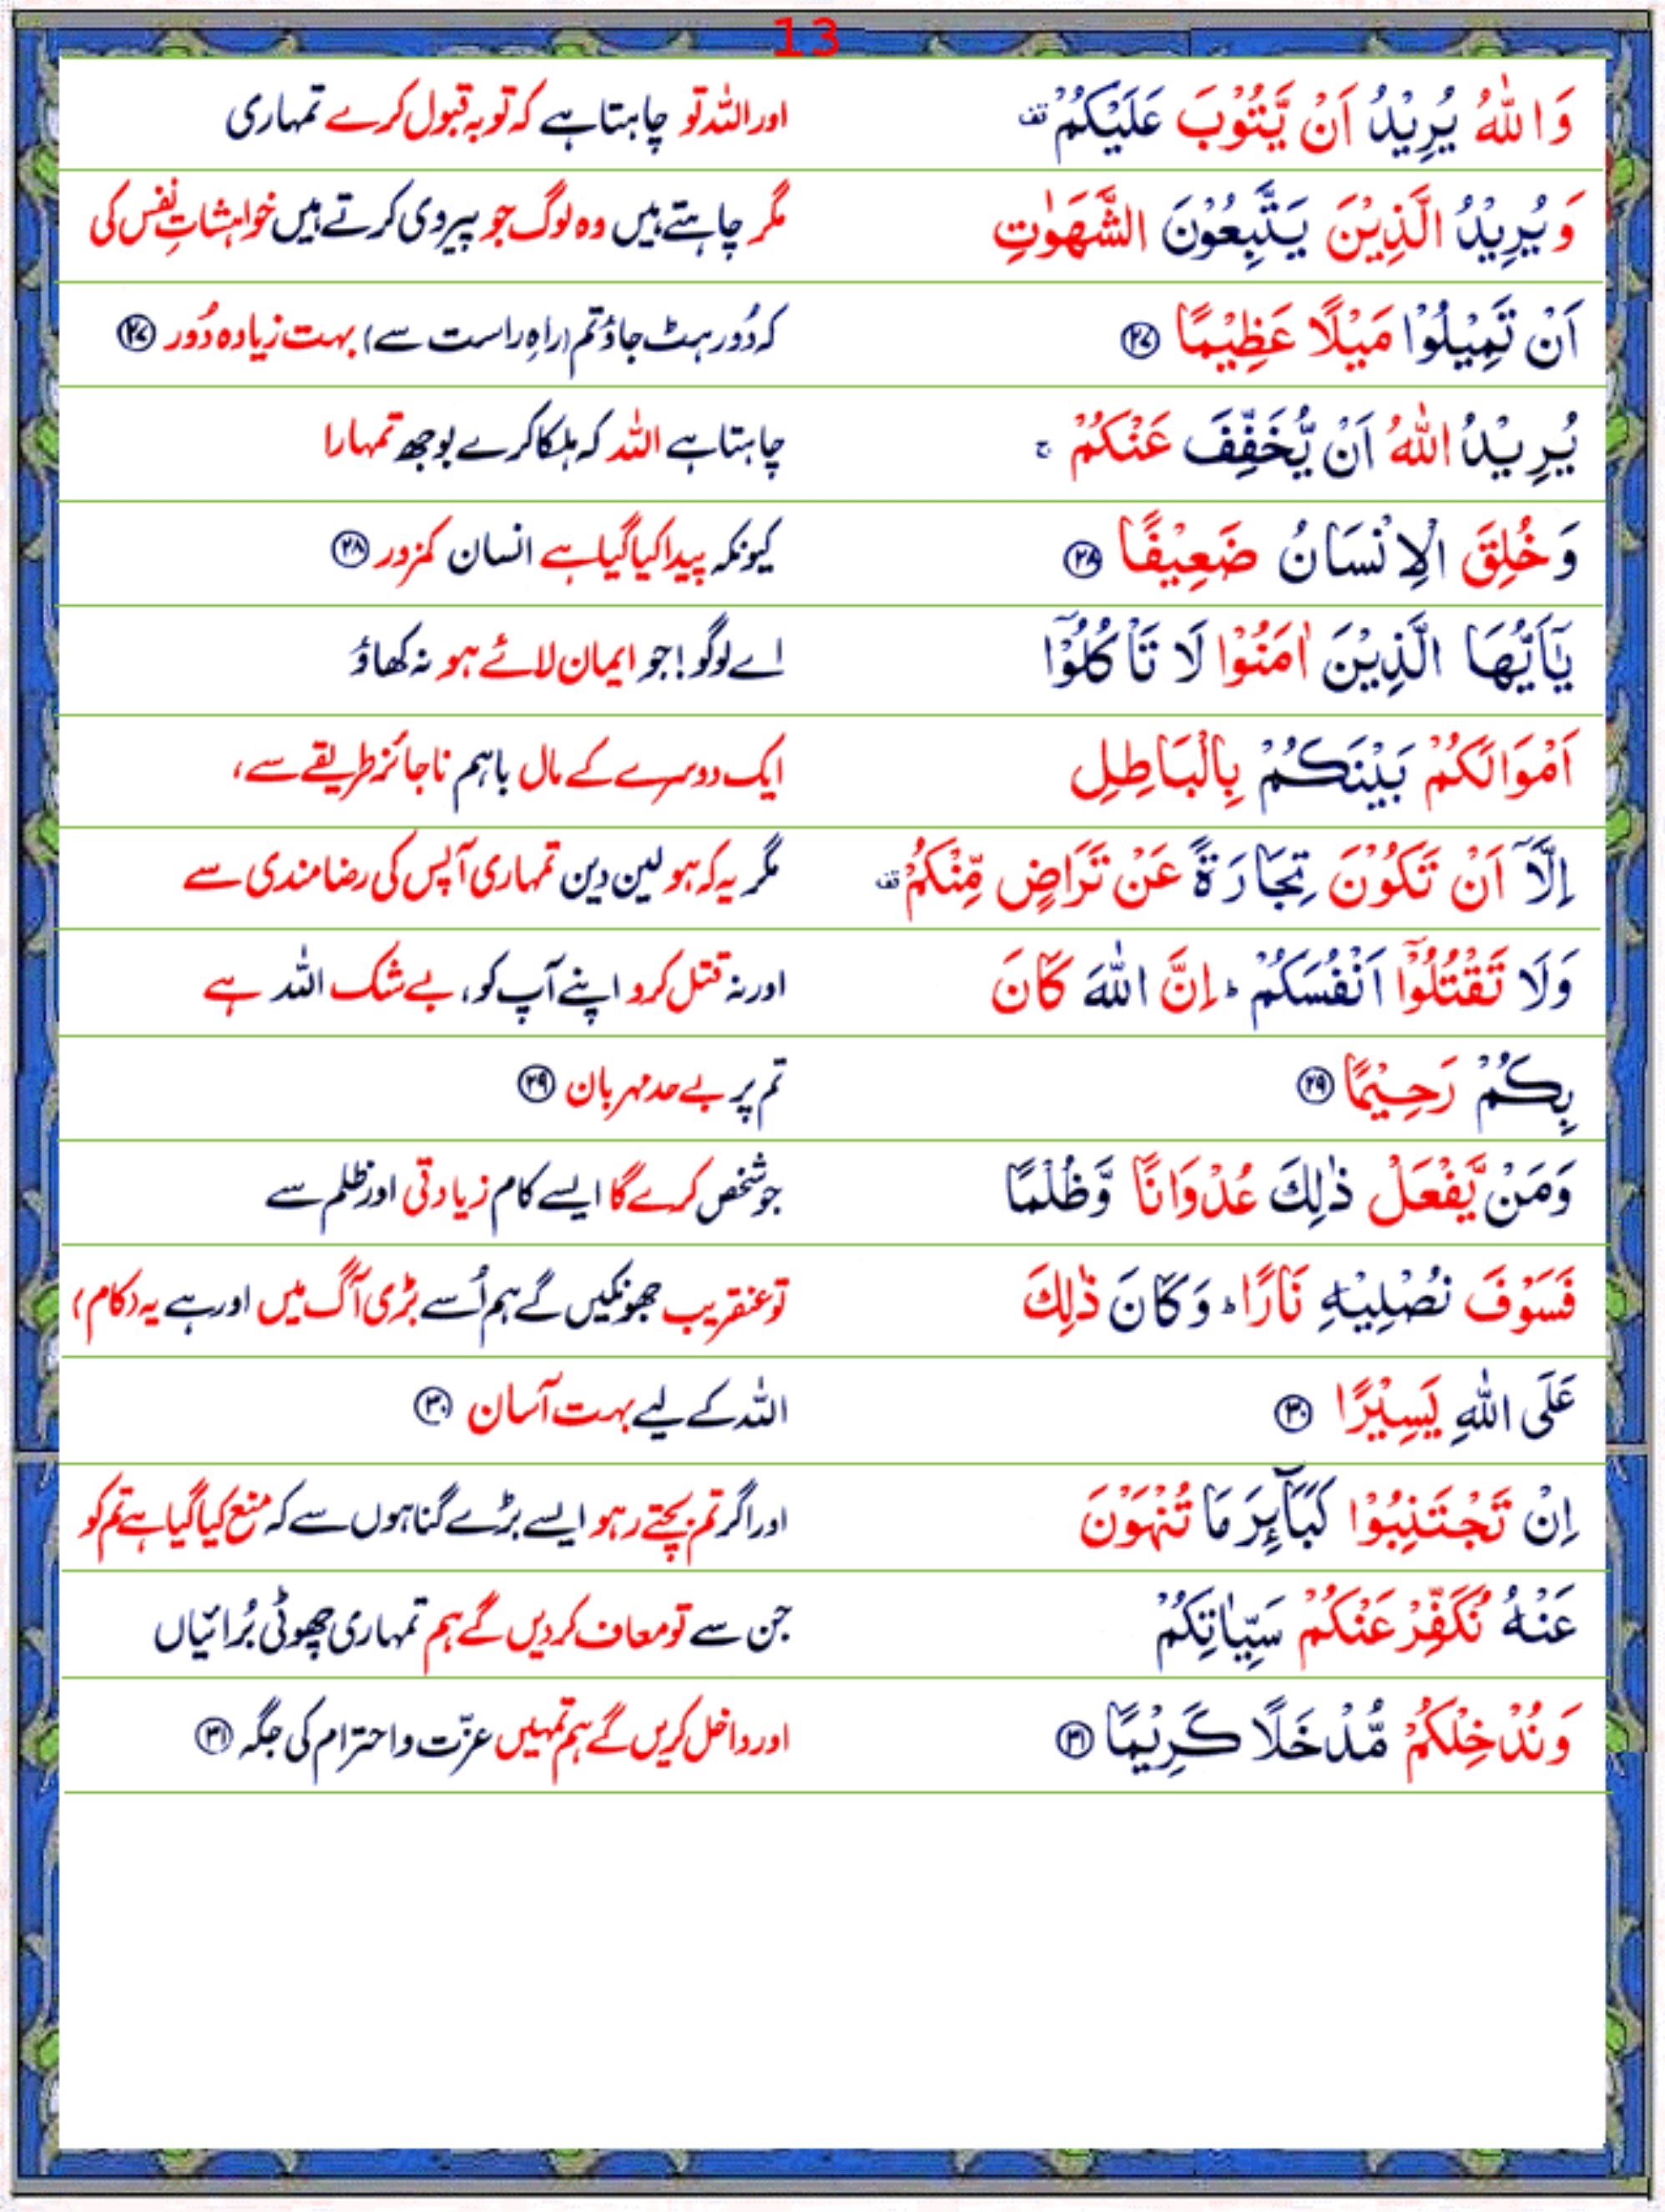 13
وَاللّٰهُ يُرِيْدُ اَنْ يَّتُوْبَ عَلَيْكُمْ ۟قف اور اللہ تو چاہتا ہے کہ توبہ قبول کرے تمہاری
وَيُرِيْدُ الَّذِيْنَ يَتَّبِعُوْنَ الشَّهَوٰتِ مگر چاہتے ہیں وہ لوگ جو پیروی کرتے ہیں خواہشاتِ نفس کی
اَنْ تَمِيْلُوْا مَيْلًا عَظِيْمًا ﴿۲۷﴾ کہ دُور ہٹ جاؤ تم (راہِ راست سے) بہت زیادہ دُور ﴿۲۷﴾
يُرِيْدُ اللّٰهُ اَنْ يُّخَفِّفَ عَنْكُمْ ۚ چاہتا ہے اللہ کہ ہلکا کرے بوجھ تمہارا
وَخُلِقَ الْاِنْسَانُ ضَعِيْفًا ﴿۲۸﴾ کیونکہ پیدا کیا گیا ہے انسان کمزور ﴿۲۸﴾
يٰٓاَيُّهَا الَّذِيْنَ اٰمَنُوْا لَا تَاْكُلُوْٓا اے لوگو! جو ایمان لائے ہو نہ کھاؤ
اَمْوَالَكُمْ بَيْنَكُمْ بِالْبَاطِلِ ایک دوسرے کے مال باہم ناجائز طریقے سے،
اِلَّآ اَنْ تَكُوْنَ تِجَارَةً عَنْ تَرَاضٍ مِّنْكُمْ ۟قف مگر یہ کہ ہو لین دین تمہاری آپس کی رضامندی سے
وَلَا تَقْتُلُوْٓا اَنْفُسَكُمْ ؕ اِنَّ اللّٰهَ كَانَ اور نہ قتل کرو اپنے آپ کو، بے شک اللہ ہے
بِكُمْ رَحِيْمًا ﴿۲۹﴾ تم پر بے حد مہربان ﴿۲۹﴾
وَمَنْ يَّفْعَلْ ذٰلِكَ عُدْوَانًا وَّظُلْمًا جو شخص کرے گا ایسے کام زیادتی اور ظلم سے
فَسَوْفَ نُصْلِيْهِ نَارًا ؕ وَكَانَ ذٰلِكَ تو عنقریب جھونکیں گے ہم اُسے بڑی آگ میں اور ہے یہ (کام)
عَلَى اللّٰهِ يَسِيْرًا ﴿۳۰﴾ اللہ کے لیے بہت آسان ﴿۳۰﴾
اِنْ تَجْتَنِبُوْا كَبَآئِرَ مَا تُنْهَوْنَ اور اگر تم بچتے رہو ایسے بڑے گناہوں سے کہ منع کیا گیا ہے تم کو
عَنْهُ نُكَفِّرْ عَنْكُمْ سَيِّاٰتِكُمْ جن سے تو معاف کردیں گے ہم تمہاری چھوٹی بُرائیاں
وَنُدْخِلْكُمْ مُّدْخَلًا كَرِيْمًا ﴿۳۱﴾ اور داخل کریں گے ہم تمہیں عزّت و احترام کی جگہ ﴿۳۱﴾